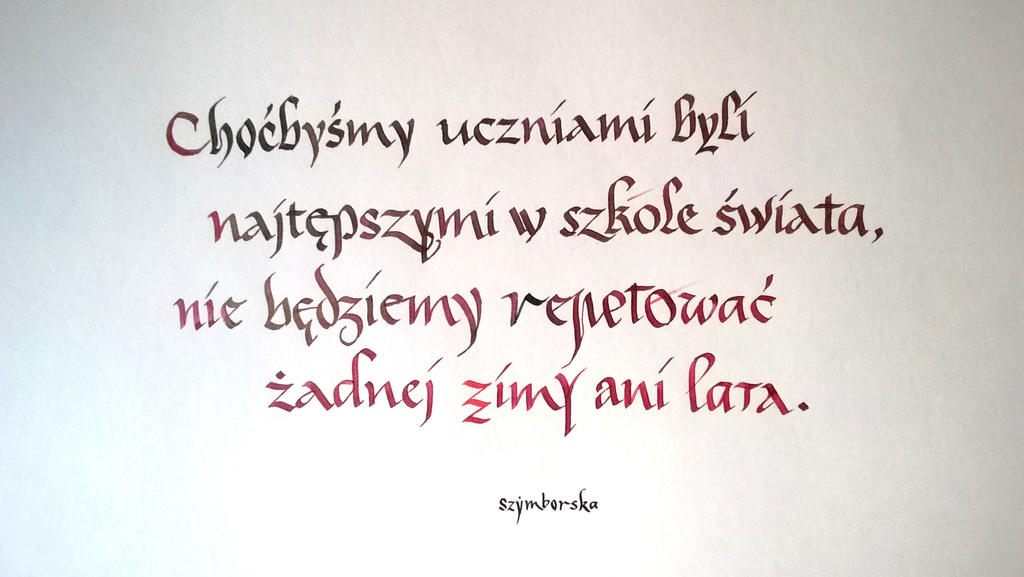 Choćbyśmy uczniami byli
najtępszymi w szkole świata,
nie będziemy repetować
żadnej zimy ani lata.
szymborska